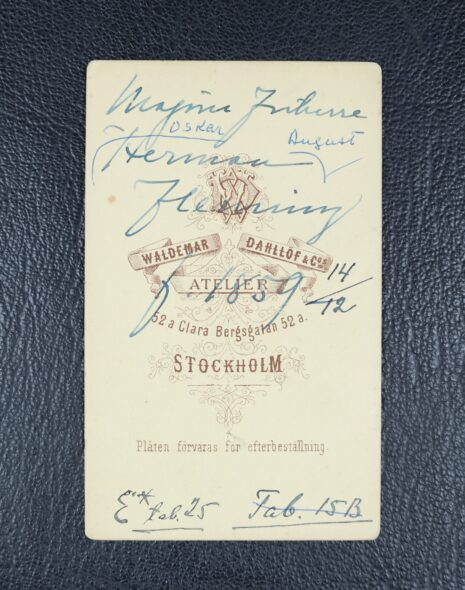 Majoren Friherre
Oskar August
Herman
Fleming
WALDEMAR DAHLLÖF & Co:s
ATELIER
f. 1859 14/12
52 a Clara Bergsgatan 52 a.
STOCKHOLM
Plåten förvaras för efterbeställning.
tab. 25 Tab. 15B